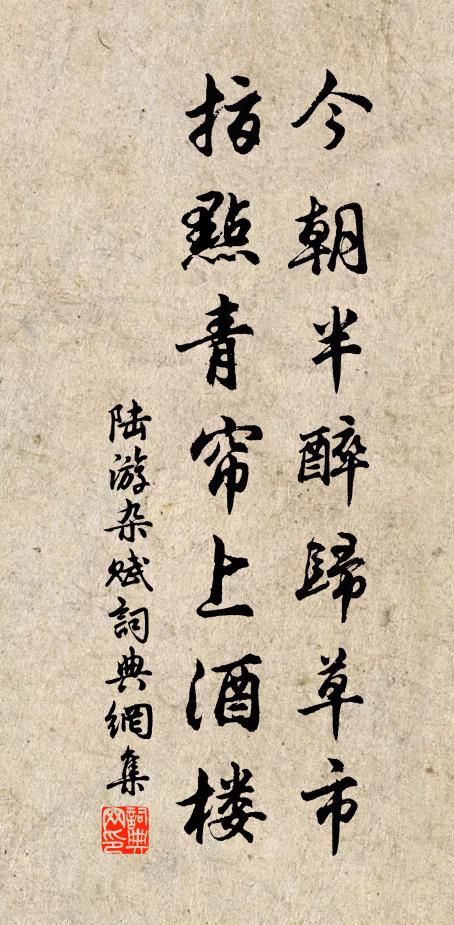 今朝半醉歸草市
指點青帘上酒楼
陆游杂赋詞典網集
詞典
网印